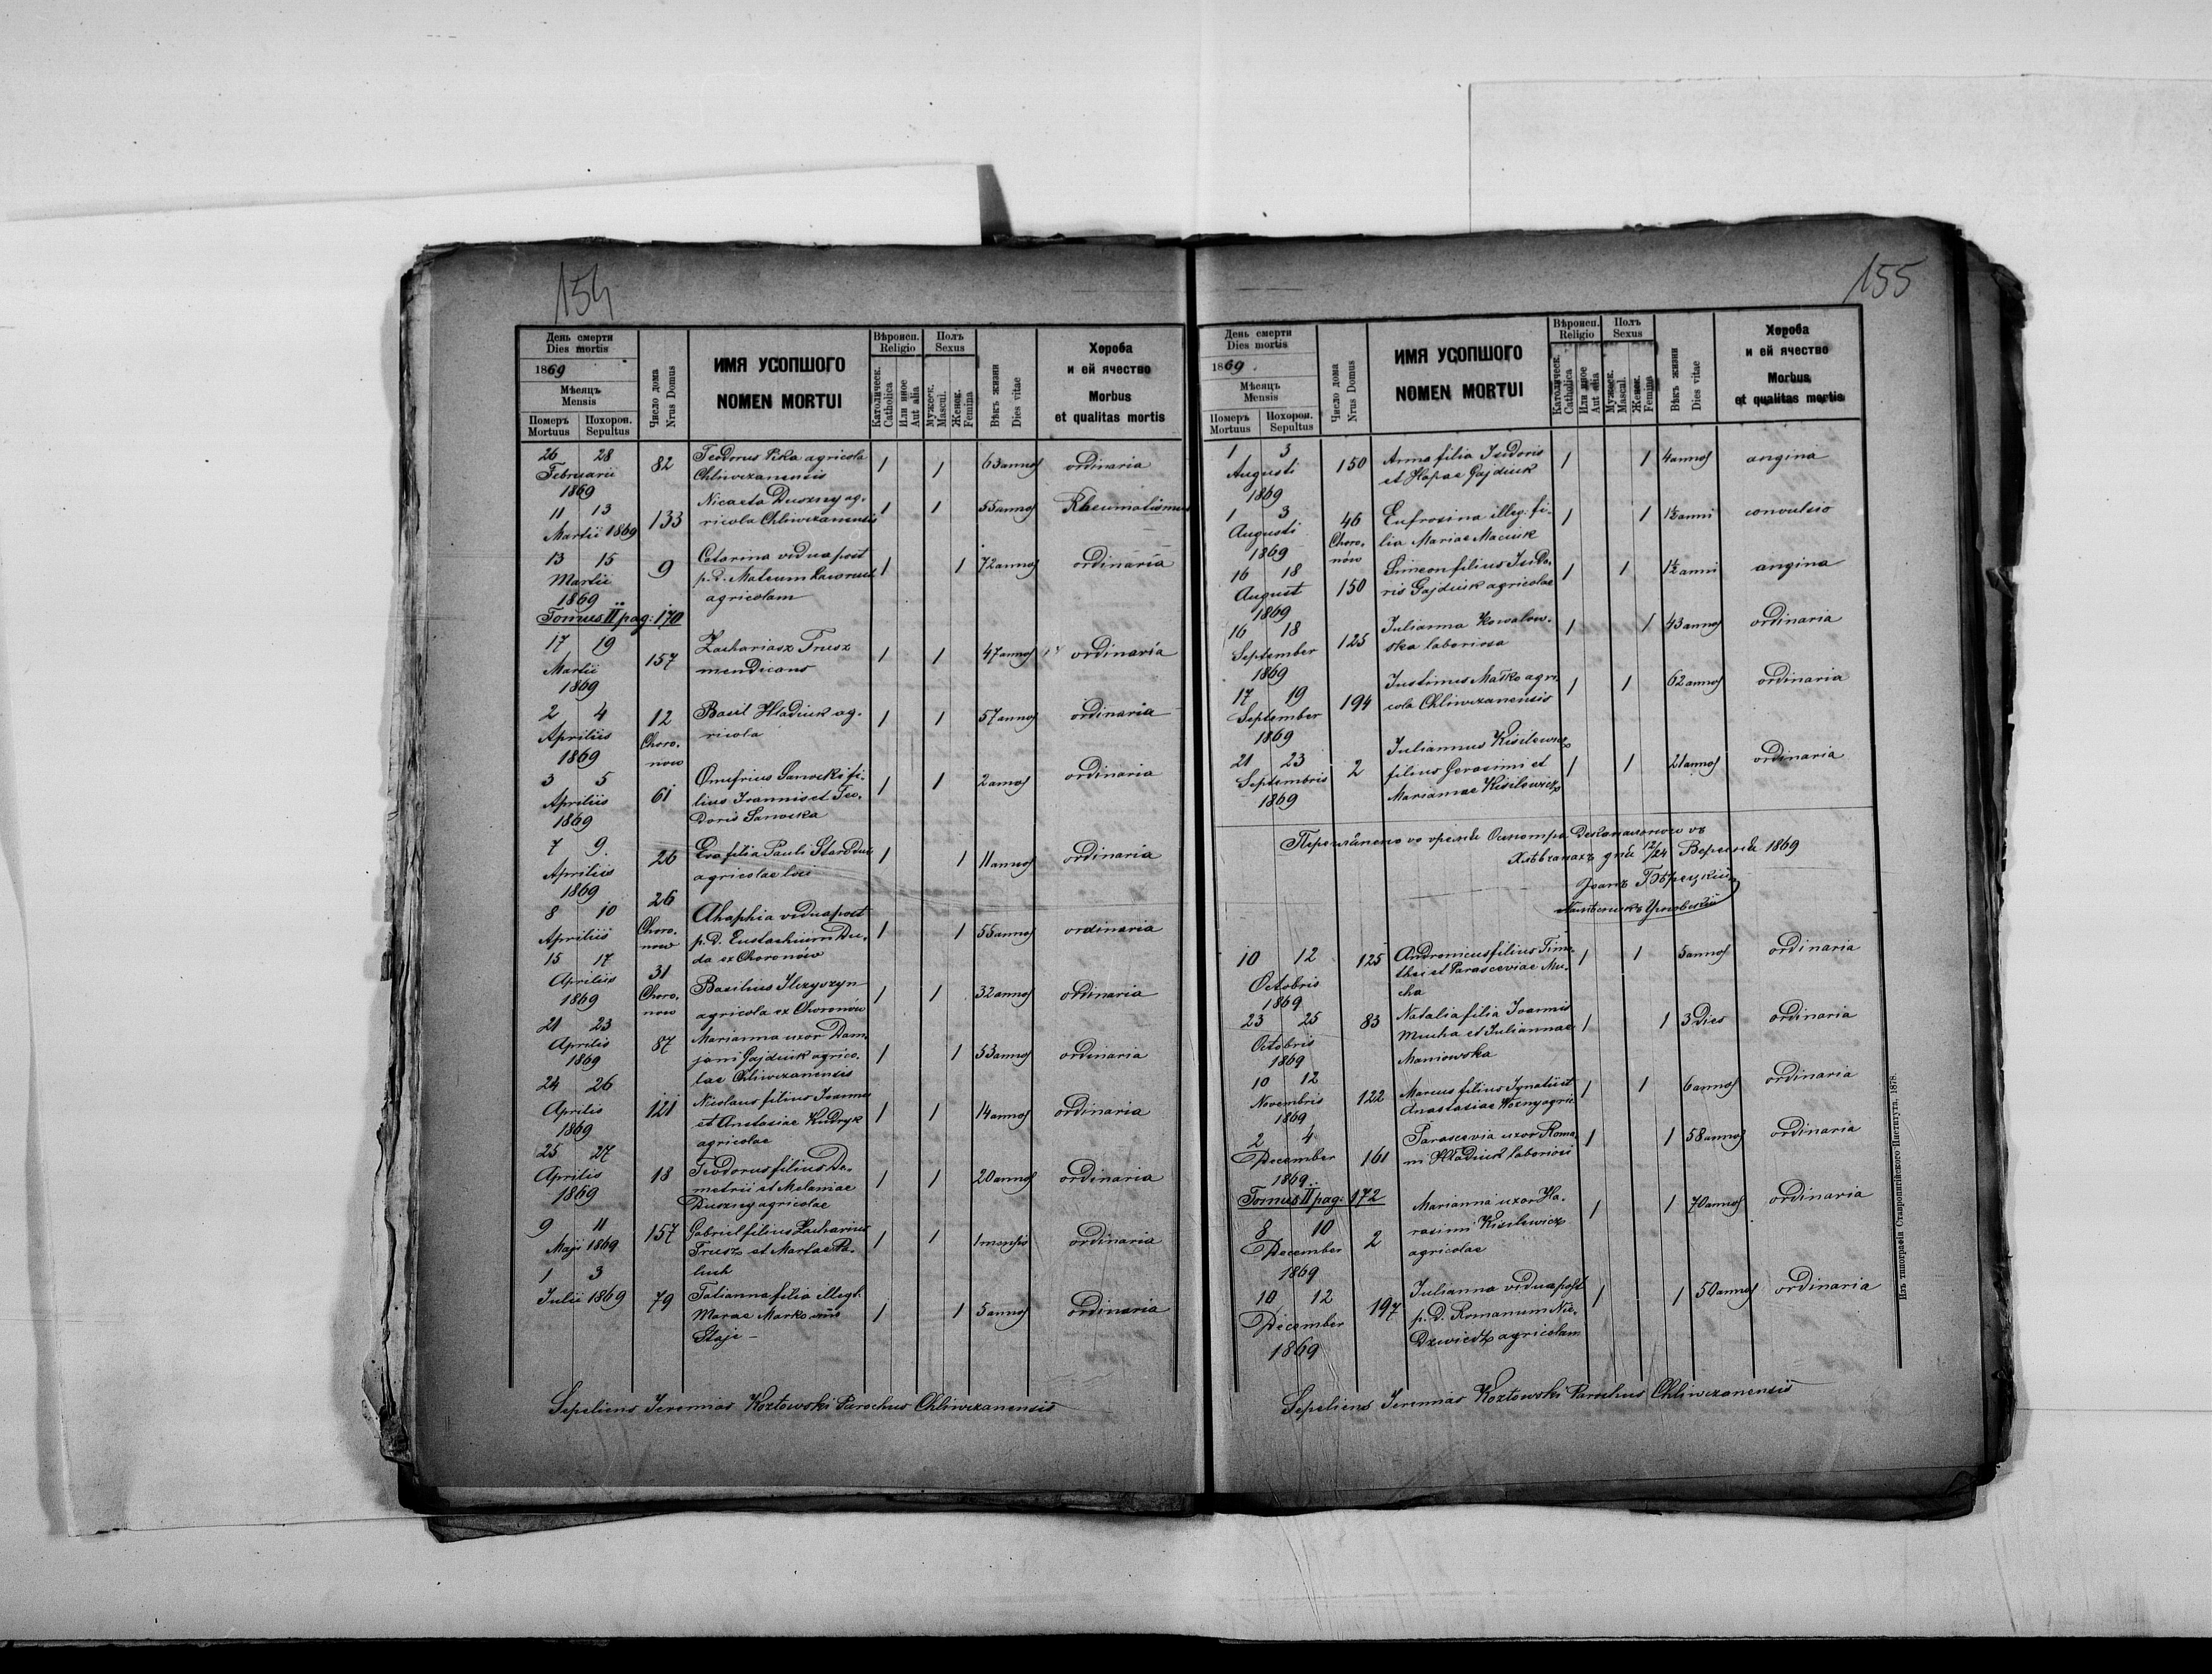 154
День смерти
Dies mortis
1869
Мѣсяцъ
Mensis
Померъ Похорон.
Mortuus Sepultus
Число дома
Nrus Domus
ИМЯ УСОПШОГО
NOMEN MORTUI
Вѣроисп.
Religio
Католическ.
Catholica
Или иное
Aut alia
Полъ
Sexus
Мужеск.
Mascul.
Женск.
Femina
Вѣкъ жизни
Dies vitae
Хороба
и ей ячество
Morbus
et qualitas mortis
26 28
Februarii
1869
82
Teodorus Pika agricola
Chliwczanensis
1 1 63 annos ordinaria
11 13
Martii 1869
133
Nicaeta Duszny ag-
ricola Chliwczanensis
1 1 55 annos Rheumatismus
13 15
Martii
1869
9
Catarina vidua post
p. d. Mateum
agricolam
1 1 72 annos ordinaria
Tomus II pag: 170
17 19
Martii
1869
157
Zachariasz Trusz
mendicans
1 1 47 annos ordinaria
2 4
Apriliis
1869
12
Choro-
now
Basil Hładiuk ag-
ricola
1 1 57 annos ordinaria
3 5
Apriliis
1869
61
Onufrius Sanocki fi-
lius Joannis et Teo-
doris Sanocka
1 1 2 annos ordinaria
7 9
Apriliis
1869
26
Eva filia Pauli
agricolae loci
1 1 11 annos ordinaria
8 10
Apriliis
26
Choro-
now
Ahaphia vidua post
p. d. Eustachium Du-
da ex Choronów
1 1 55 annos ordinaria
15 17
Apriliis
1869
31
Choro-
now
Basilius Ilczyszyn
agricola ex Choronów
1 1 32 annos ordinaria
21 23
Aprilis
1869
87
Marianna uxor Dam-
jani Gajdiuk agrico-
lae Chliwczanensis
1 1 53 annos ordinaria
24 26
Aprilis
1869
121
Nicolaus filius Joannis
et Anastasiae Kudryk
agricolae
1 1 14 annos ordinaria
25 27
Aprilis
1869
18
Teodorus filius De-
metrii et Melaniae
Duszny agricolae
1 1 20 annos ordinaria
9 11
Maji 1869
157
Gabriel filius Zacharius
Trusz et Martae Pa-
luch
1 1 1 mensis ordinaria
1 3
Julii 1869
79
Tatianna filia illegt.
Marae Marko
Staje -
1 1 5 annos ordinaria
Sepeliens Jeremias Kozłowski Parochus Chliwczanensis
155
День смерти
Dies mortis
1869
Мѣсяцъ
Mensis
Померъ Похорон.
Mortuus Sepultus
Число дома
Nrus Domus
ИМЯ УСОПШОГО
NOMEN MORTUI
Вѣроисп.
Religio
Католическ.
Catholica
Или иное
Aut alia
Полъ
Sexus
Мужеск.
Mascul.
Женск.
Femina
Вѣкъ жизни
Dies vitae
Хороба
и ей ячество
Morbus
et qualitas mortis
1 3
Augusti
1869
150
Anna filia Isidoris
et Hapae Gajdiuk
1 1 4 annos angina
1 3
Augusti
1869
46
Choro-
nów
Eufrosina illeg. fi-
lia Mariae Maciuk
1 1 1½ anni convulsio
16 18
August
1869
150
Simeon filius Isido-
ris Gajdiuk agricolae
1 1 1½ anni angina
16 18
September
1869
125
Julianna Kowalow-
ska laboriosa
1 1 43 annos ordinaria
17 19
September
1869
194
Justinus Maśko agri-
cola Chliwczanensis
1 1 62 annos ordinaria
21 23
Septembris
1869
2
Juliannus Kisilewicz
filius Gerasimi et
Mariannae Kisilewicz
1 1 21 annos ordinaria
во время Деканального въ
Хлѣвчанахъ дня 12/24 Вересня 1869
Іоанъ
10 12
Octobris
1869
125
Andronicus filius Timo-
thei et Parasceviae Mu-
cha
1 1 5 annos ordinaria
23 25
Octobris
1869
83
Natalia filia Joannis
Mucha et Juliannae
Maniowska
1 1 3 dies ordinaria
10 12
Novembris
1869
122
Marcus filius Ignatii et
Anastasiae Woźny agric
1 1 6 annos ordinaria
2 4
December
1869
161
Parascevia uxor Roma-
ni Hładiuk laboriosi
1 1 58 annos ordinaria
Tomus II pag: 172
8 10
December
1869
2
Marianna uxor Ha-
rasimi Kisilewicz
agricolae
1 1 70 annos ordinaria
10 12
December
1869
197
Julianna vidua post
p. d. Romanum Nie-
dzwiedz agricolam
1 1 50 annos ordinaria
Sepeliens Jeremias Kozłowski Parochus Chliwczanensis
Изъ типографіи Ставропигійского Института, 1878.